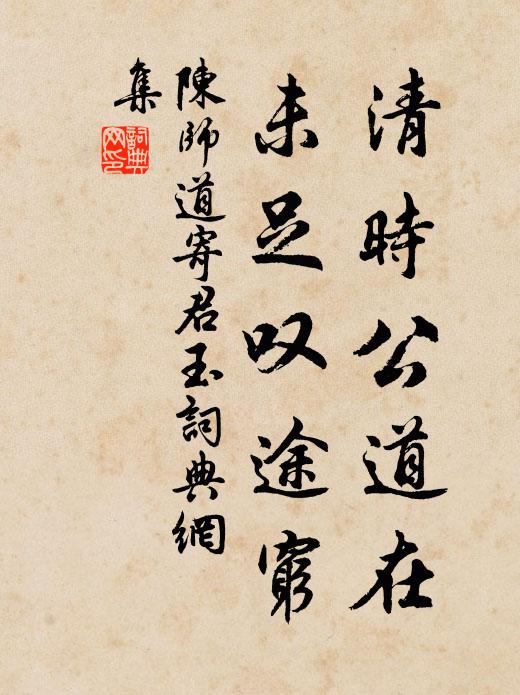 清時公道在
未足叹途窮
陳師道寄君玉詞典網
集
詞典
网印